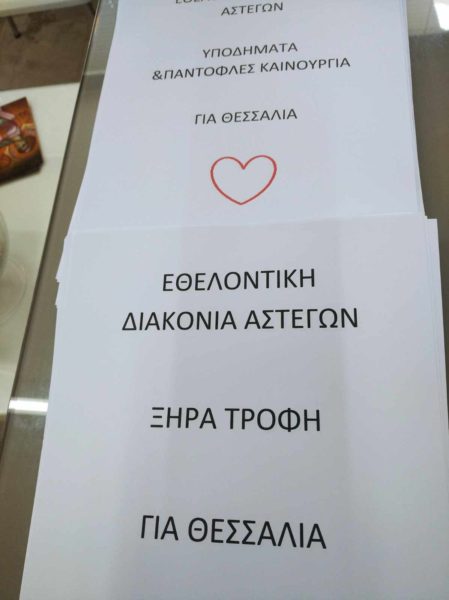 ΑΣΤΕΓΩΝ
ΥΠΟΔΗΜΑΤΑ
&ΠΑΝΤΟΦΛΕΣ ΚΑΙΝΟΥΡΓΙΑ
ΓΙΑ ΘΕΣΣΑΛΙΑ
ΕΘΕΛΟΝΤΙΚΗ
ΔΙΑΚΟΝΙΑ ΑΣΤΕΓΩΝ
ΞΗΡΑ ΤΡΟΦΗ
ΓΙΑ ΘΕΣΣΑΛΙΑ